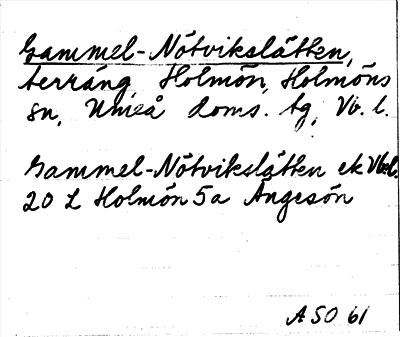 Gammel-Nötvikslätten,
terräng, Holmön, Holmöns
sn, Umeå doms. tg, Vb. l.
Gammel-Nötvikslätten ek Vbl.
20 L Holmön 5a Ängesön
ASO 61